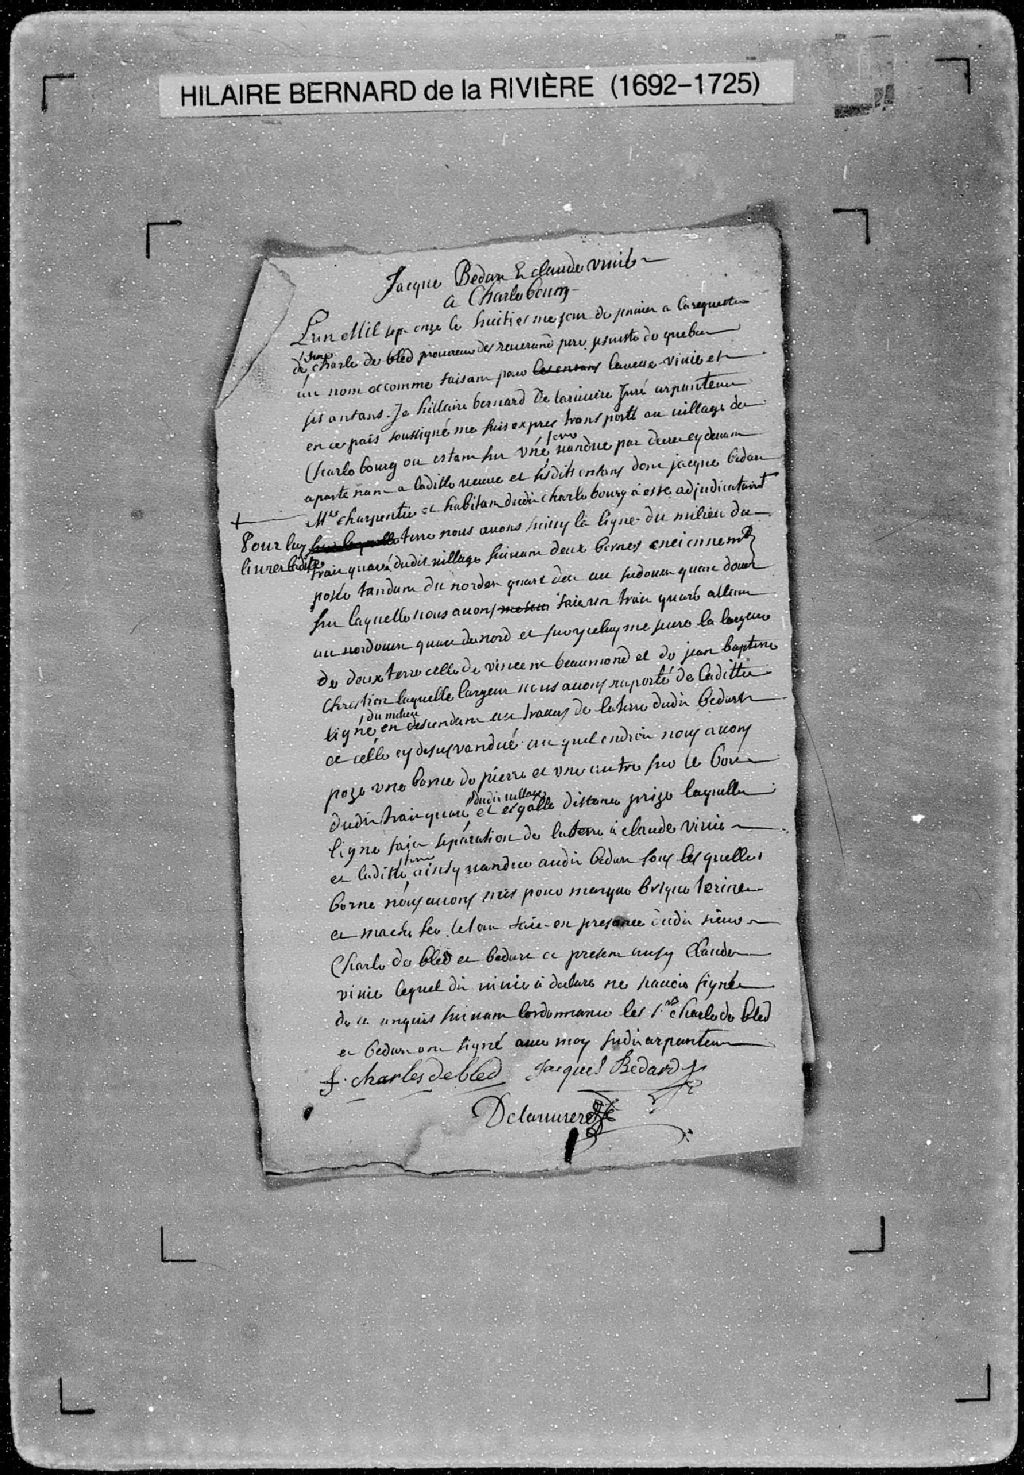 HILAIRE BERNARD de la RIVIÈRE (1692–1725)
Jacque Bedar & claude vinier
a Charlebourg
Lan Mil sept onze le huitiesme jour de janvier a la requeste
de frere charle de bled procureur des reverand pere jesuiste de quebec
au nom et comme faisam pour les enfans la veuve vinie et
ses anfans. Je hillaire bernard De lariviere Juré arpanteur
en ce païs soussigné me suis exprès transporté au village de
Charlebourg ou estam sur une terre vandue par decret cy devam
aparte nam a laditte veuve et sesdits enfans dom jacque bedar
Mtre charpentie et habitam dudit charlebourg a esté adjudicataire
Pour luy livrer laditte terre nous avons suivy la ligne du milieu du
trai quaré dudit village suivam deux bornes enciennem
posée tandam du nordes quart dest au sudouest quart douest
sur laquelle nous avons mesuré faire un trai quaré allam
au nordouest quart de nord et sur yceluy me suré la largeur
de deux terre celle de vincent beaumond et de jean baptiste
Chrestien laquelle largeur nous avons raporté de laditte
ligne du milieu en descendam au travers de la terre dudit bedard
et celle cy desus vandué au quel endroi nous avons
pozé une borne de pierre et une autre sur le bor
dudit trai quaré dudit village et esgalle distance prize laquelle
ligne fai la separation de la terre a claude vinie
et laditte terre ainsy vandue audit bedar sous lesquelles
borne nous avons mis pour marque brique terine
et machefer le tou fai en presance dudit sieur
Charle de bled et bedard et presem ausy Claude
vinie lequel dit vinie a declaré ne savoir signé
de ce anquis suivam lordonnance les sr. charle de bled
et bedar on signé avec moy sudit arpanteur
f. charles debled Jacques Bedard
Delariviere